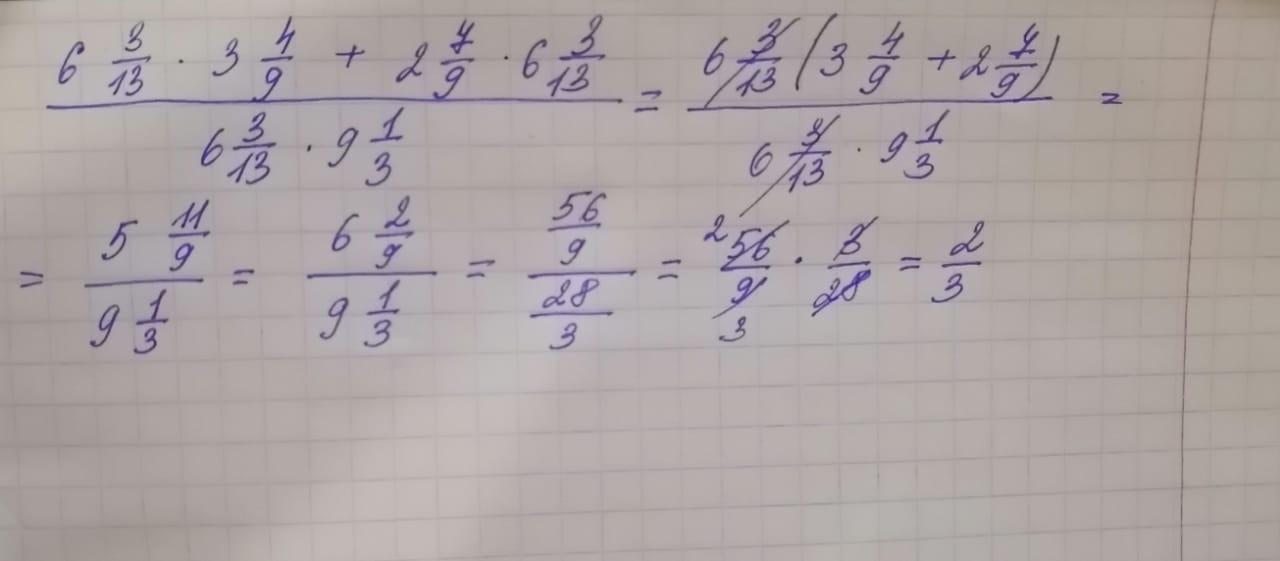 \frac{6 \frac{3}{13} \cdot 3 \frac{4}{9} + 2 \frac{7}{9} \cdot 6 \frac{3}{13}}{6 \frac{3}{13} \cdot 9 \frac{1}{3}} = \frac{6 \frac{3}{13} (3 \frac{4}{9} + 2 \frac{7}{9})}{6 \frac{3}{13} \cdot 9 \frac{1}{3}} =
= \frac{5 \frac{11}{9}}{9 \frac{1}{3}} = \frac{6 \frac{2}{9}}{9 \frac{1}{3}} = \frac{\frac{56}{9}}{\frac{28}{3}} = \frac{^{2} 56}{9 _{3}} \cdot \frac{3}{28} = \frac{2}{3}